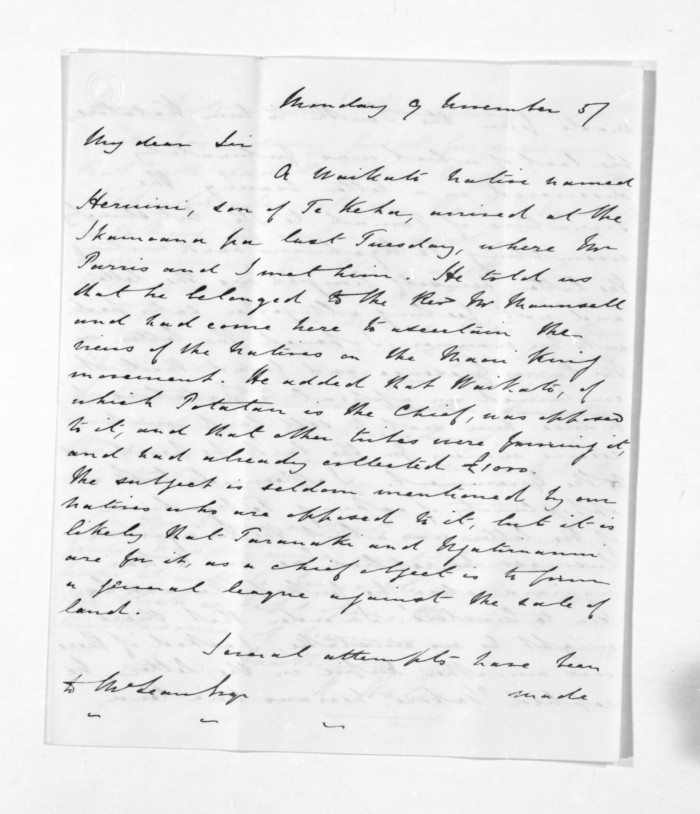 Monday 9 November 57
My dear Sir
A Waikato Native named
Heruini, son of Te Keha, arrived at the
Ikamoana pa last Tuesday, where Mr
Parris and I met him. He told us
that he belonged to the Revd Mr Maunsell
and had come here to ascertain the
views of the Natives on the Maori King
movement. He added that Waikato, of
which Potatau is the Chief, was opposed
to it, and that other tribes were favoring it,
and had already collected £1000.
The subject is seldom mentioned by our
Natives who are opposed to it, but it is
likely that Taranaki and Ngatiruanui
are for it, as a chief object is to form
a general league against the sale of
land.
Several attempts have been
to McLean Esqr made